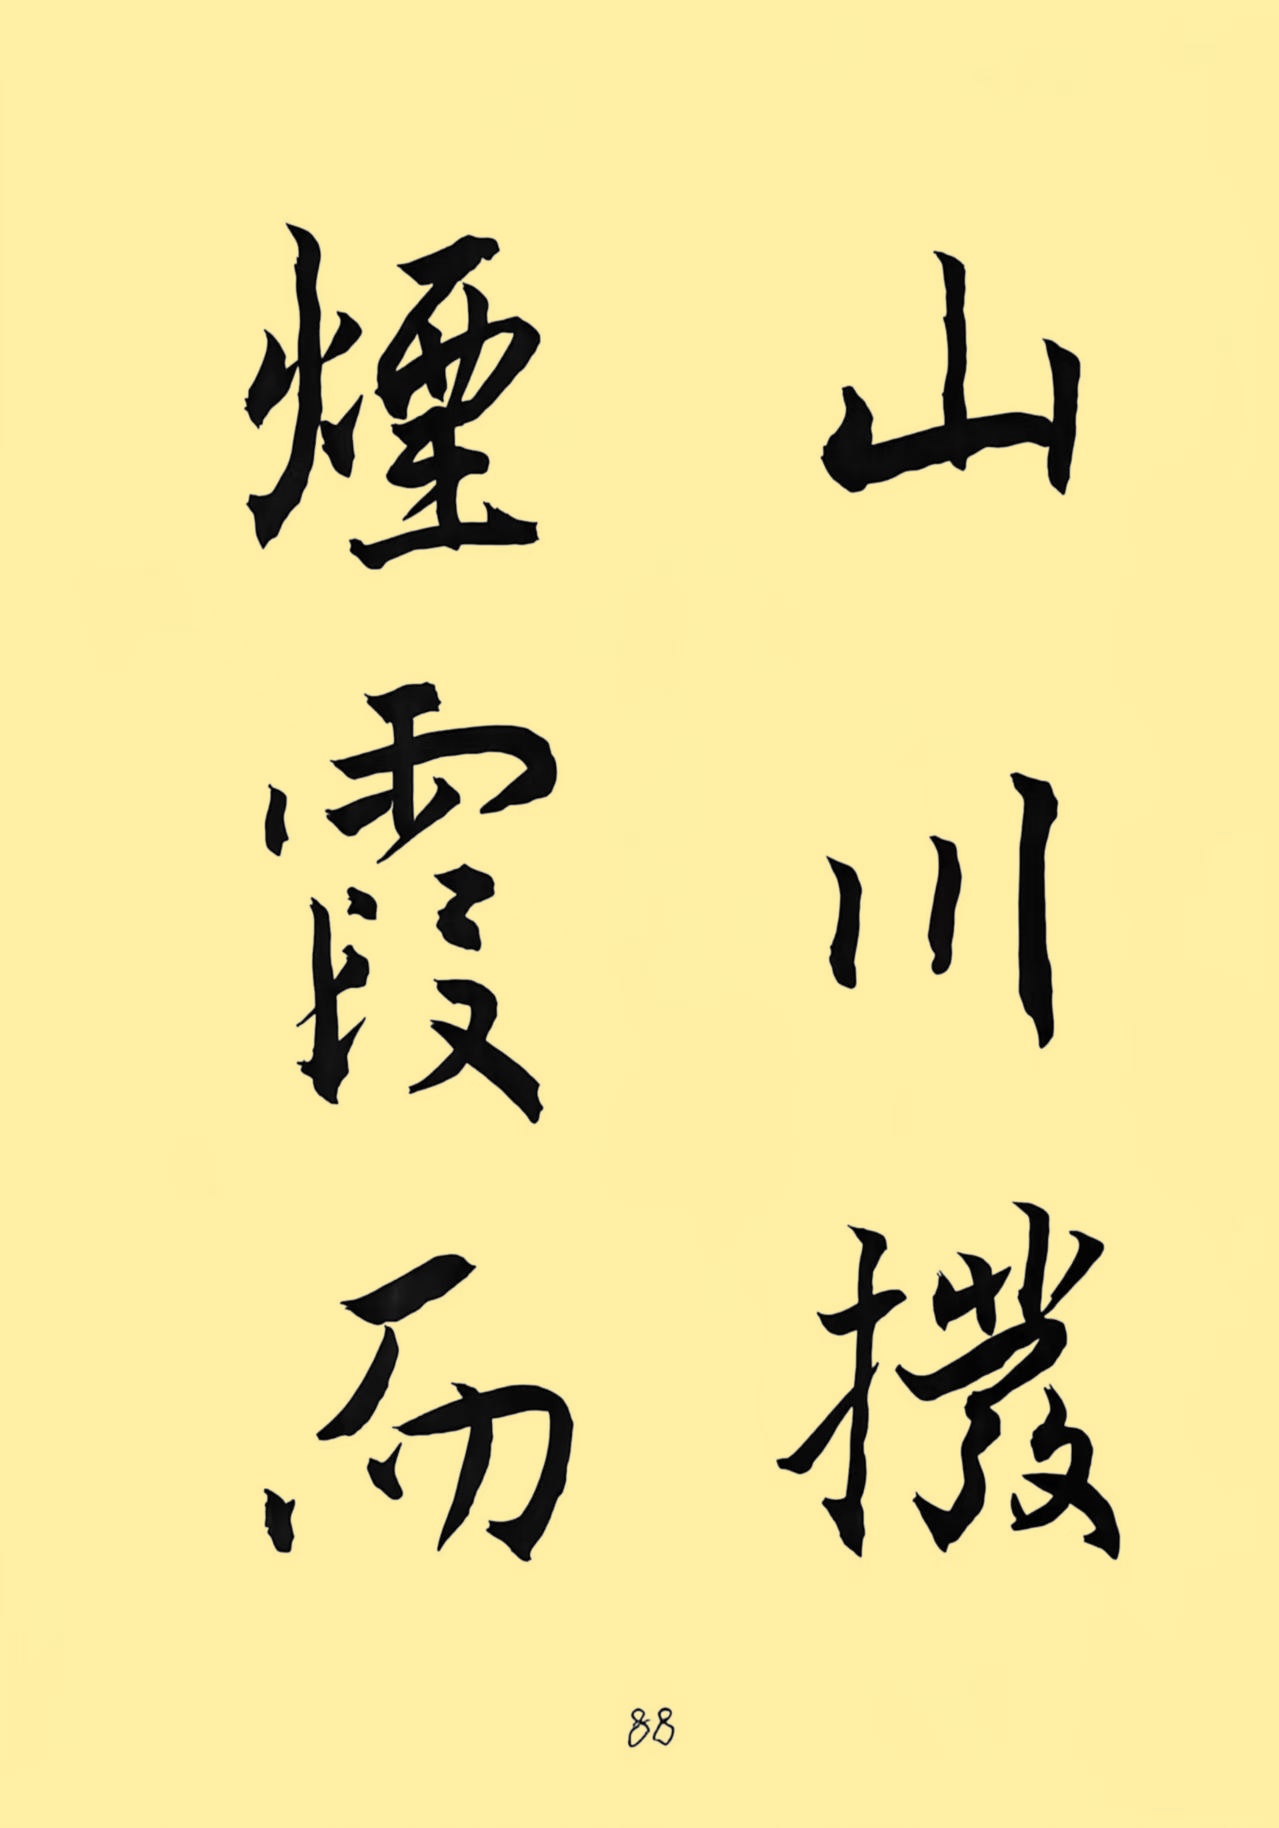 山川撥
煙霞而
88